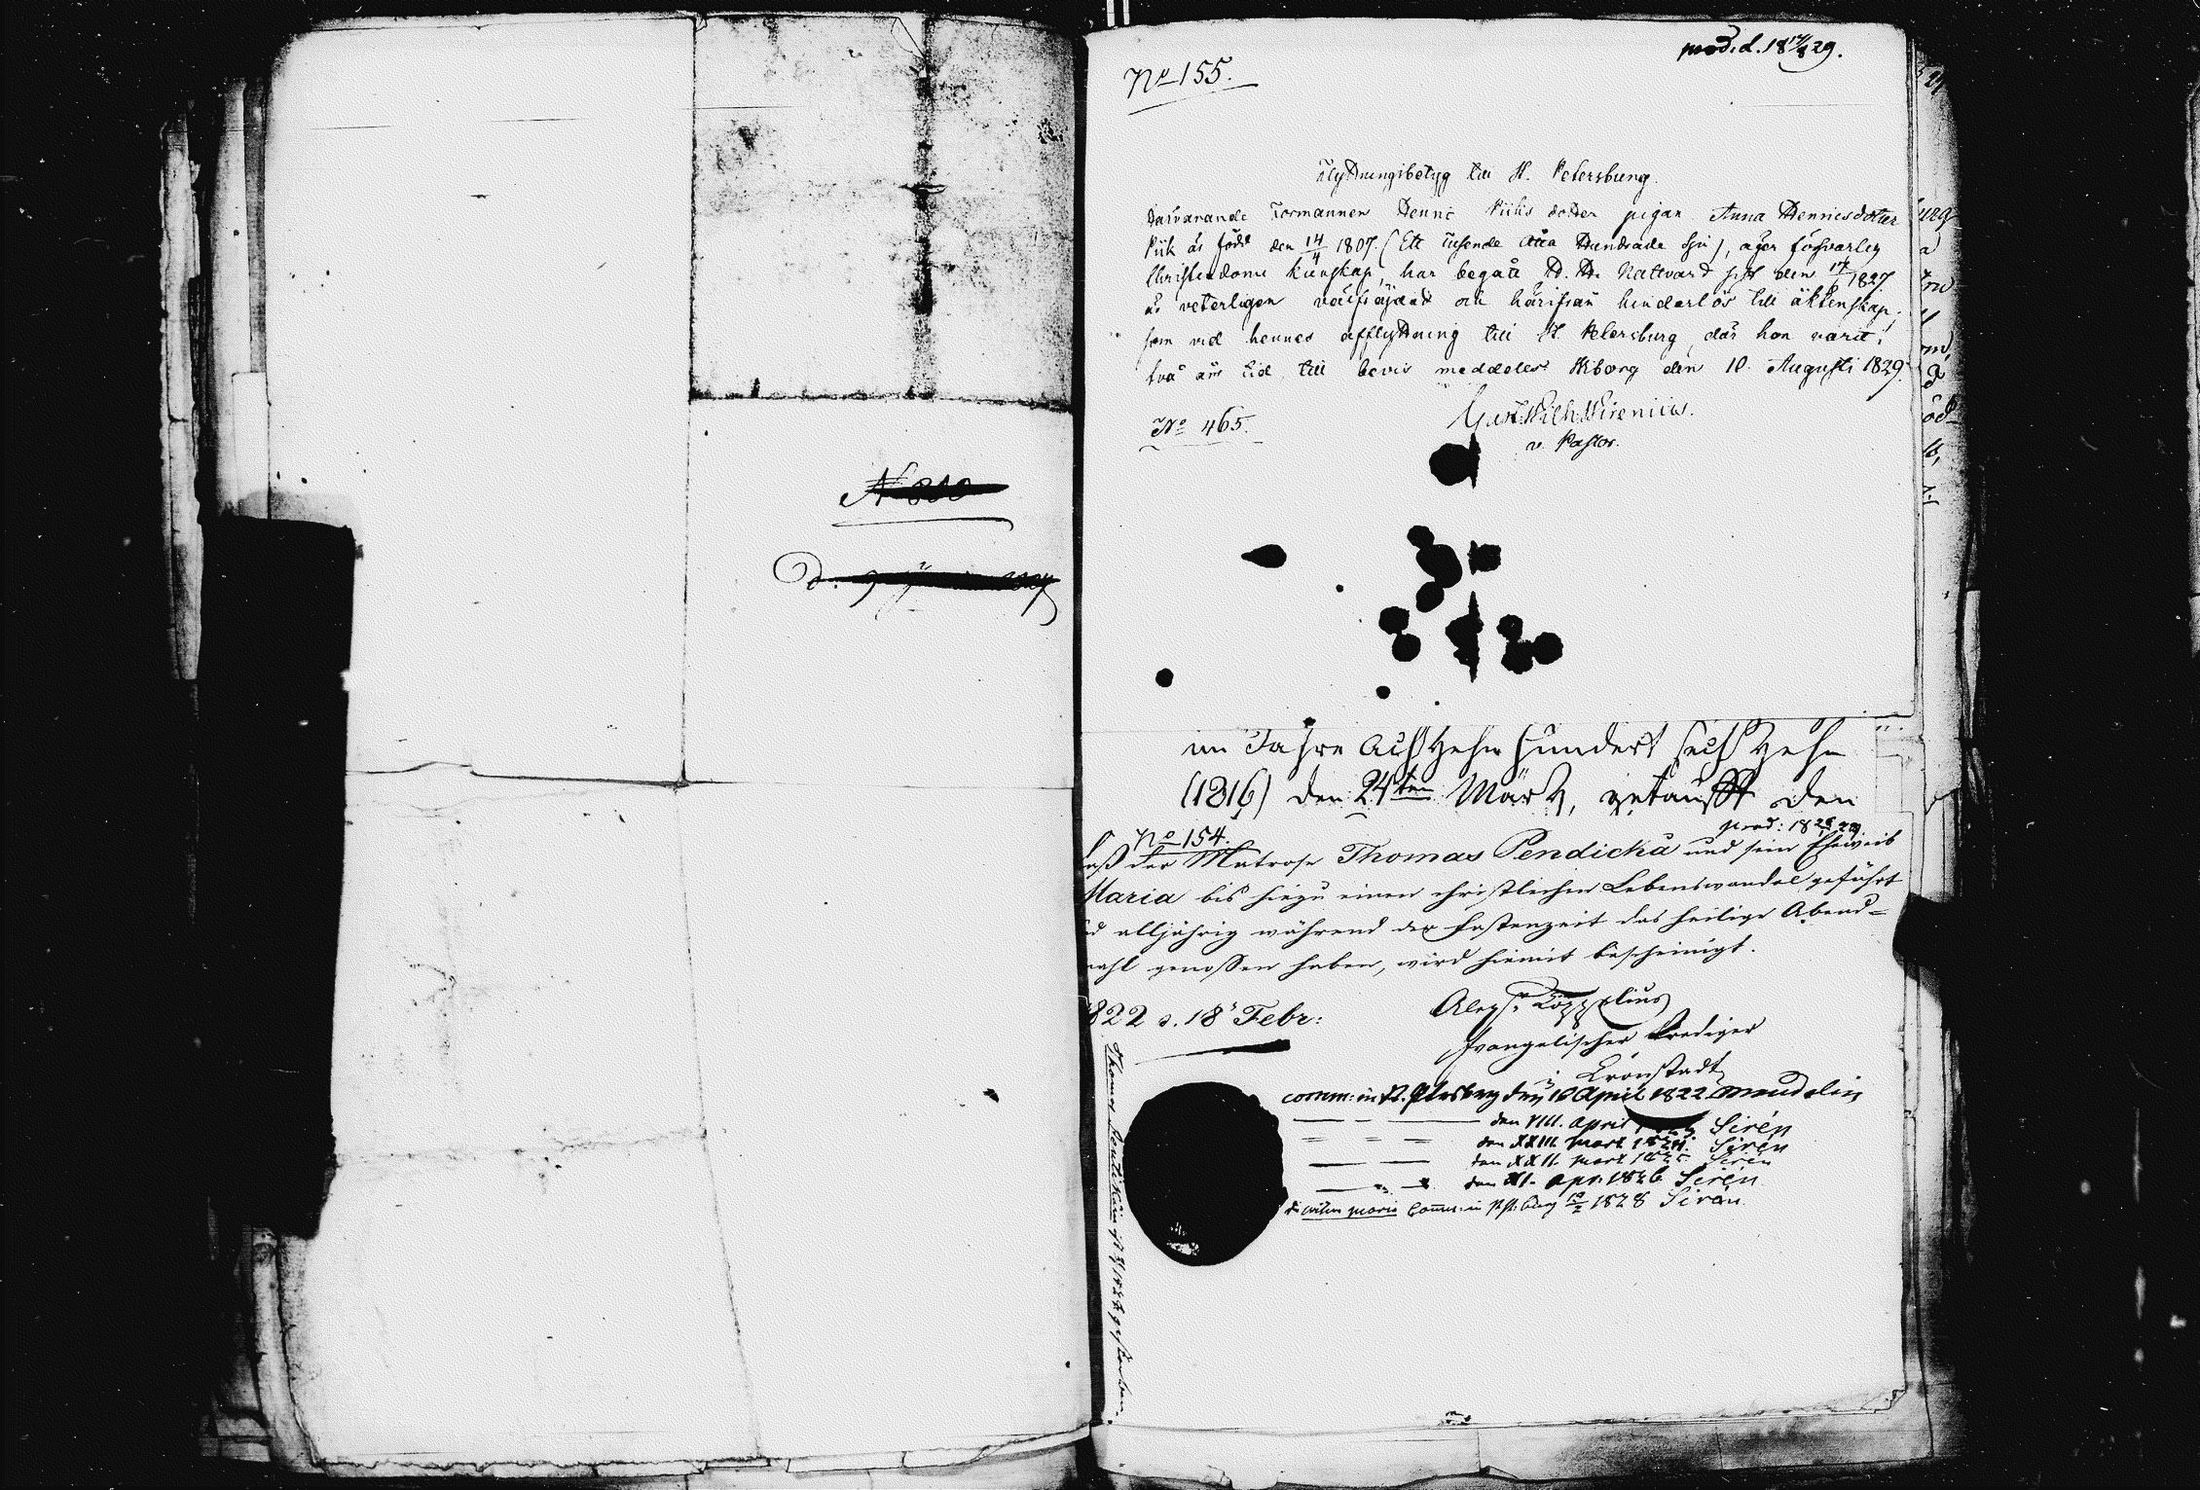 prod. d. 18 17/8 29.
No 155.
Flyttningsbetyg till St. Petersburg.
Torrmannen Henric Piiks dotter pigan Anna Henricsdotter
Piik är född den 14/4 1807 (Ett tusende åtta Hundrade sju), äger försvarlig
Christendoms kunskap, har begått H. H. Nattvard sist den 1827
är veterligen välfräjdad och härifrån hinderlös till äktenskap;
som vid hennes afflyttning till St. Petersburg, där hon varit i
två års tid, till bevis meddelas. Wiborg den 10 Augusti 1829.
Gust. Wilh. Wirenius.
v. Pastor.
No 465.
No 810
im Jahre Achtzehn hundert sechzehn
(1816) den 24ten März, getaufft den
No 154.
prod: 18 29
daß der Matrose Thomas Pendickä und sein Eheweib
Maria bis hiezu einen christlichen Lebenswandel geführt
und alljährig während der Fastenzeit das heilige Abend=
mahl genossen haben, wird hiemit bescheinigt.
1822 d. 18 Febr:
Evangelischer Prediger
in Cronstadt
comm: in St. Ptrsburg den 10 April 1822 Mandelin
den VIII. April Sirén
den XXIII. Mart. 1824. Sirén
den XXII. Mart 1825 Sirén
den XI. Apr. 1826 Sirén
die Witwe Maria Comm: in St. Pburg 19/2 1828 Sirén.
Thomas gestorben.